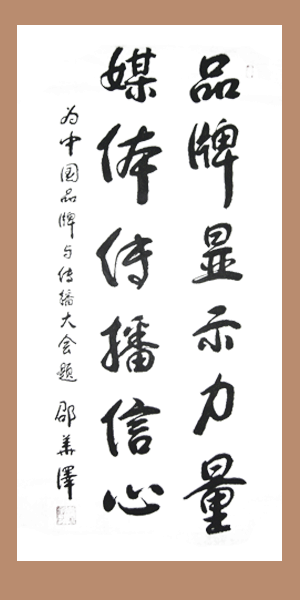 品牌显示力量
媒体传播信心
为中国品牌与传播大会题 邵华泽